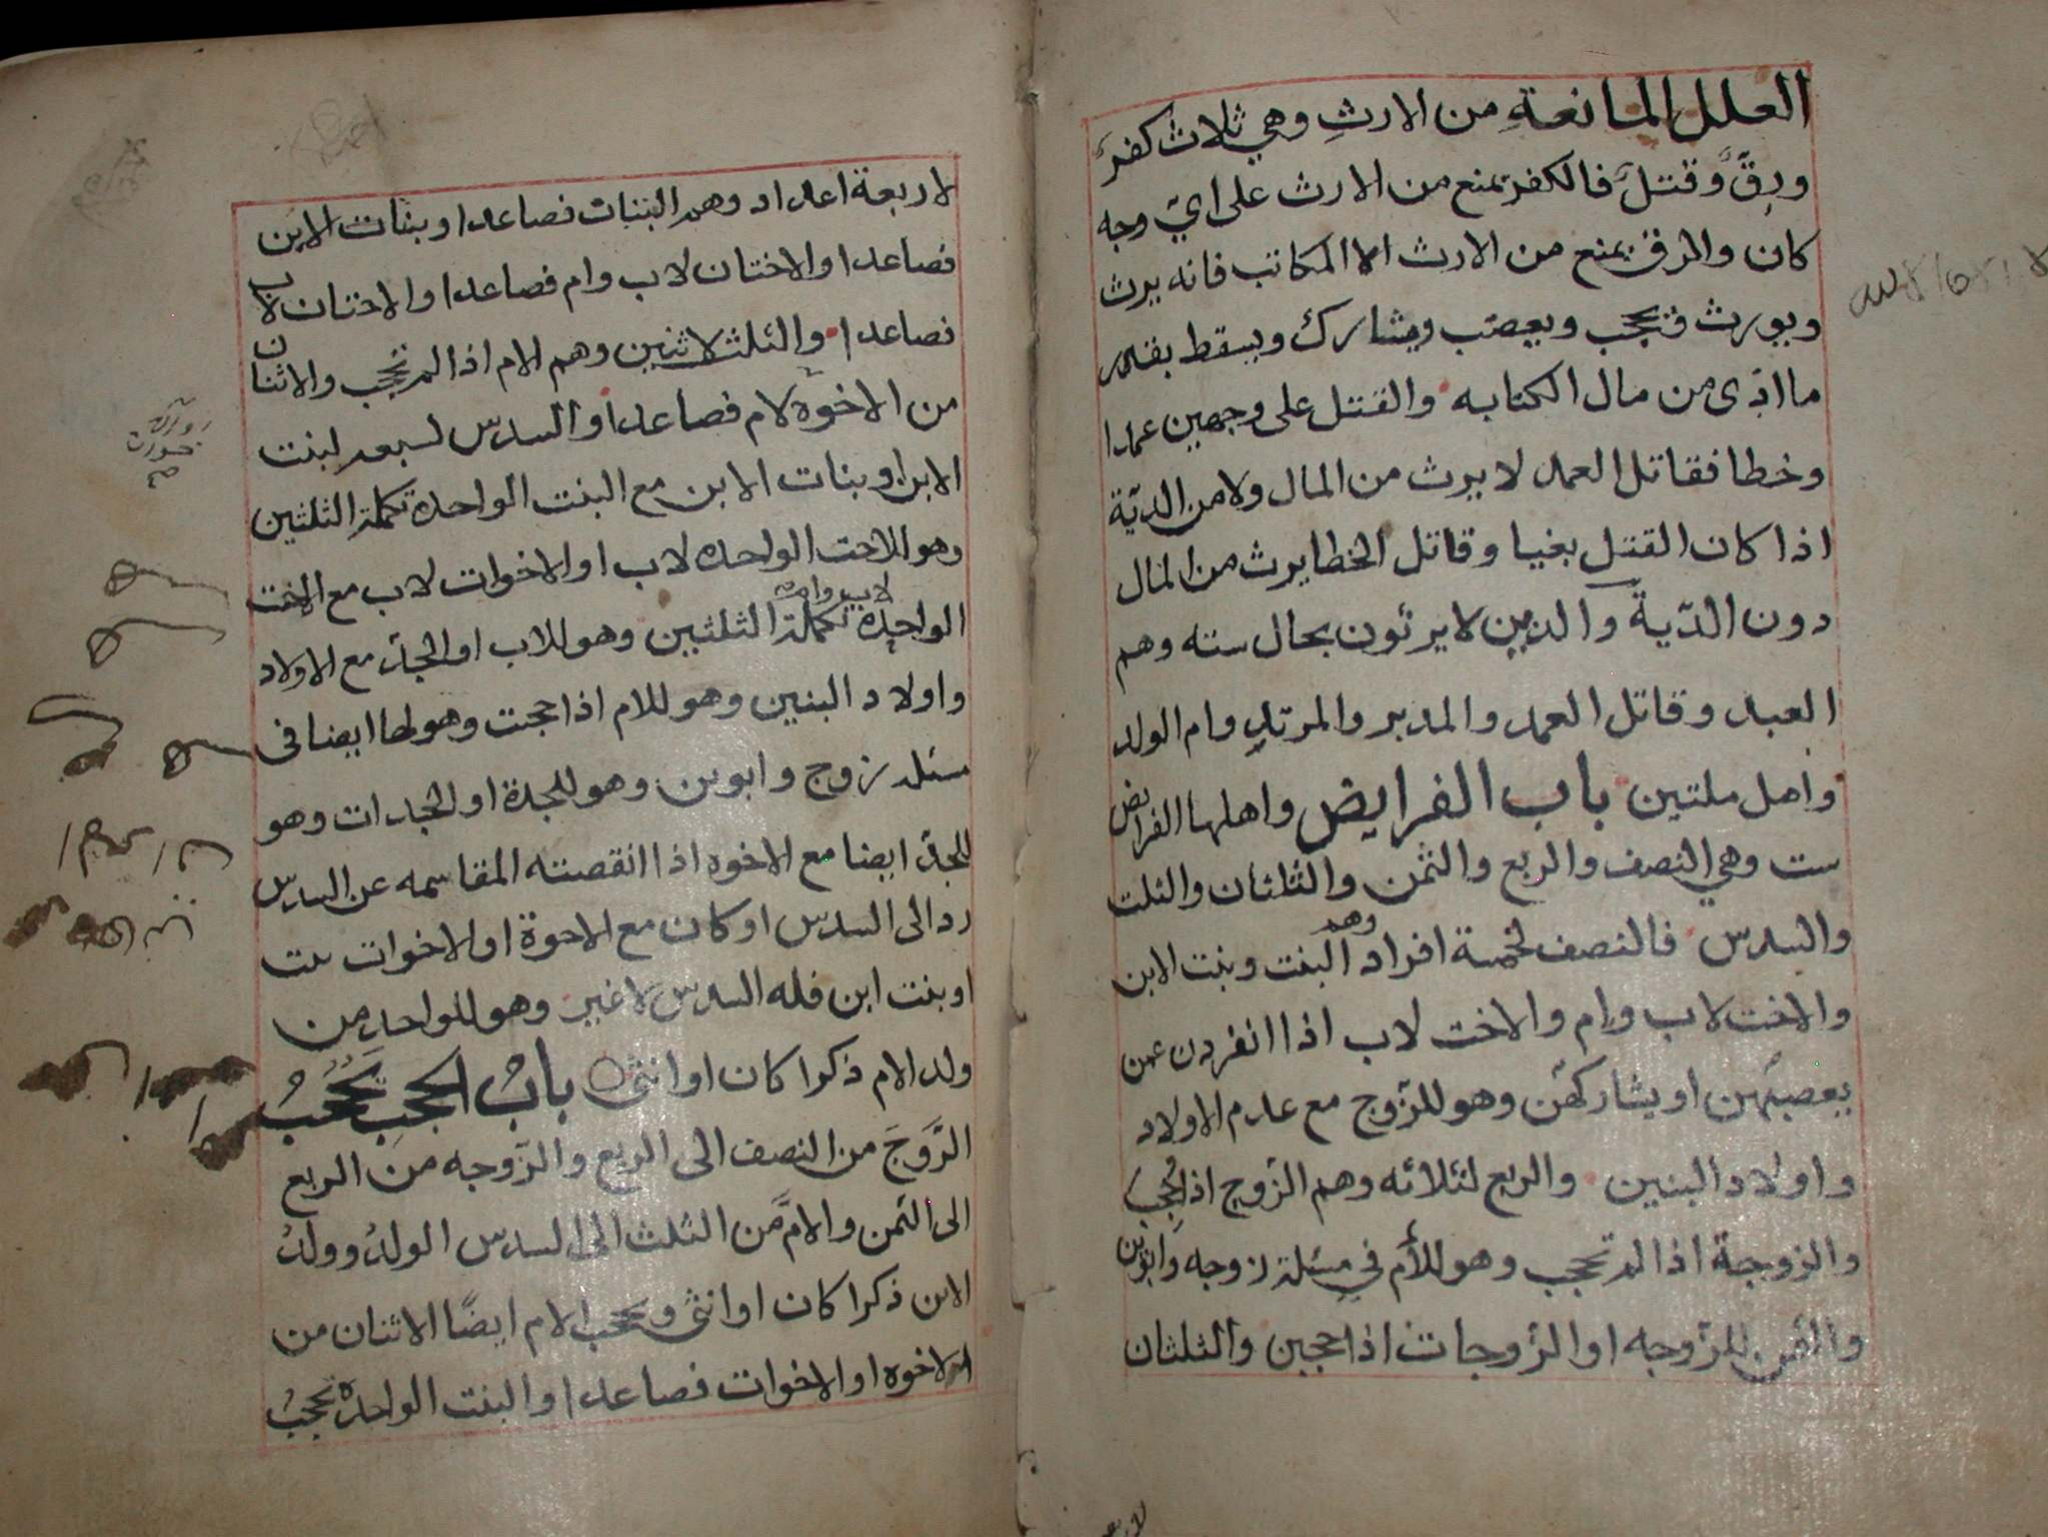 العلل المانعة من الارث وهي ثلاث كفر
ورق وقتل فالكفر يمنع من الارث على اي وجه
كان والرق يمنع من الارث الا المكاتب فانه يرث
ويورث فيحجب ويعصب ويشارك ويسقط بقدر
ما ادى من مال الكتابه والقتل على وجهين عمدا
وخطا فقاتل العمد لا يرث من المال ولا من الدية
اذا كان القتل بغيا وقاتل الخطا يرث من المال
دون الدية والذين لا يرثون بحال سته وهم
العبد وقاتل العمد والمدبر والمرتد وام الولد
واهل ملتين باب الفرايض واهلها الفرايض
ست وهي النصف والربع والثمن والثلثان والثلث
والسدس فالنصف لخمسة افراد وهم البنت وبنت الابن
والاخت لاب وام والاخت لاب اذا انفردن عمن
يعصبهن او يشاركهن وهو للزوج مع عدم الاولاد
واولاد البنين والربع لثلاثه وهم الزوج اذا حجب
والزوجة اذا لم تحجب وهو للأم في مسئلة زوجه وابوين
والثمن للزوجه او الزوجات اذا حجبن والثلثان
لاربعة اعداد وهم البنتان فصاعدا وبنات الابن
فصاعدا والاختان لاب وام فصاعدا والاختان لاب
فصاعدا والثلث لاثنين وهم الام اذا لم تحجب والاثنان
من الاخوة لام فصاعدا والسدس لسبعه لبنت
الابن او بنات الابن مع البنت الواحدة تكملة الثلثين
وهو للاخت الواحده لاب او الاخوات لاب مع الاخت
لاب وام
الواحدة تكملة الثلثين وهو للاب او الجد مع الاولاد
واولاد البنين وهو للام اذا حجبت وهو لها ايضا في
مسئلة زوج وابوين وهو للجدة او الجدات وهو
للجد ايضا مع الاخوه اذا انقصته المقاسمه عن السدس
رد الى السدس او كان مع الاخوة او الاخوات بنت
او بنت ابن فله السدس لا غير وهو للواحد من
ولد الام ذكرا كان او انثى باب الحجب يحجب
الزوج من النصف الى الربع والزوجه من الربع
الى الثمن والام من الثلث الى السدس الولد وولد
الابن ذكرا كان او انثى ويحجب الام ايضا الاثنان من
الاخوه او الاخوات فصاعدا والبنت الواحدة تحجب